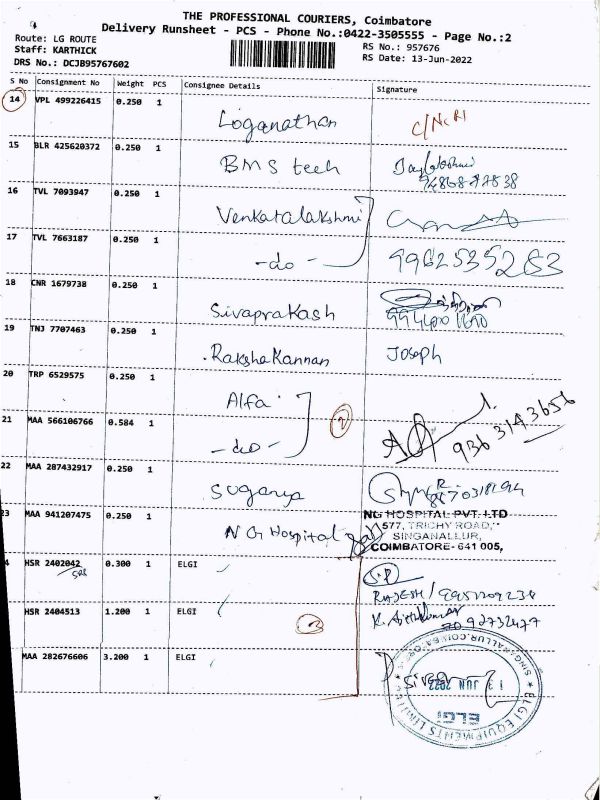 THE PROFESSIONAL COURIERS, Coimbatore
Delivery Runsheet - PCS - Phone No.:0422-3505555 - Page No.:2
Route: LG ROUTE
Staff: KARTHICK
DRS No.: DCJB95767602
RS No.: 957676
RS Date: 13-Jun-2022
S No Consignment No Weight PCS Consignee Details Signature
14 VPL 499226415 0.250 1 Loganathan
15 BLR 425620372 0.250 1 BMS tech
16 TVL 7093947 0.250 1 Venkatalakshmi
17 TVL 7663187 0.250 1 -do- 9962535263
18 CNR 1679738 0.250 1 Sivaprakash
19 TNJ 7707463 0.250 1 RakshaKannan Joseph
20 TRP 6529575 0.250 1 Alfa
21 MAA 566106766 0.584 1 -do- 2 936 3143656
22 MAA 287432917 0.250 1 Suganya
23 MAA 941207475 0.250 1 NG Hospital
NG HOSPITAL PVT. LTD
577, TRICHY ROAD,
SINGANALLUR,
COIMBATORE- 641 005,
HSR 2402042 0.300 1 ELGI S.P
RAJESH /
HSR 2404513 1.200 1 ELGI 3
MAA 282676606 3.200 1 ELGI
13 JUN 2022
ELGI
ELGI EQUIPMENTS LIMITED